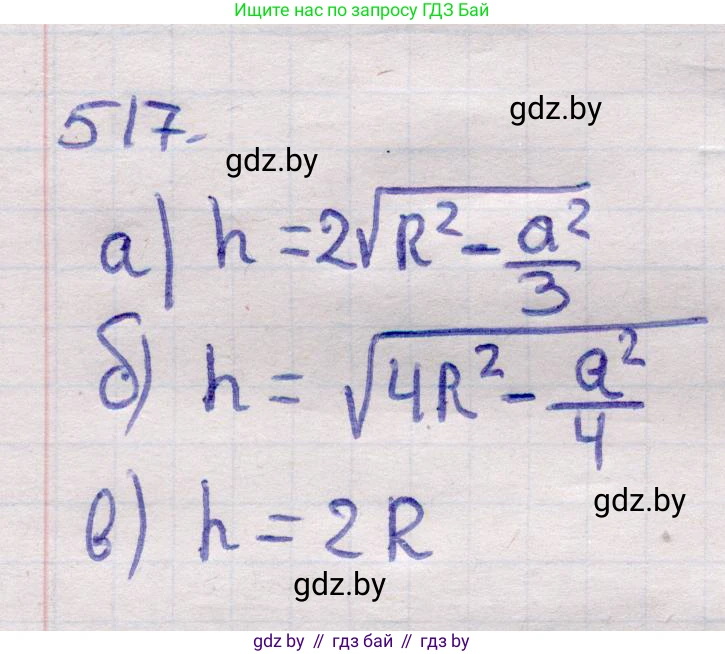 Ищите нас по запросу ГДЗ Бай
517.
gdz.by
gdz.by
а) h = 2√(R² - a²/3)
б) h = √(4R² - a²/4)
gdz.by
в) h = 2R
gdz.by
gdz by // гдз бай // гдз by